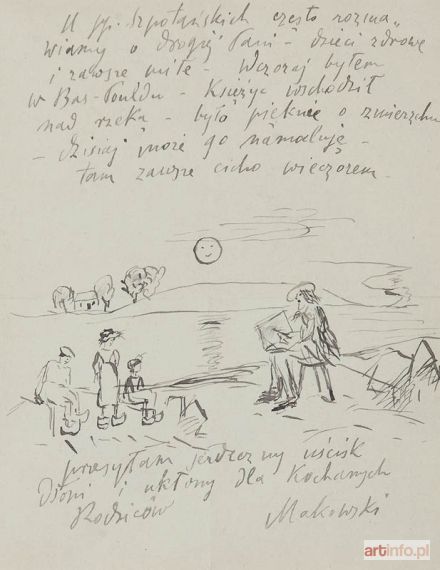 U pp. Szpotańskich często rozma„
wiamy o drogiej Pani – dzieci zdrowe
i zawsze miłe – Wczoraj byłem
w Bas-Pouldu – Księżyc wschodził
nad rzeką – było pięknie o zmierzchu
– dzisiaj może go namaluję –
tam zawsze cicho wieczorem.
przesyłam serdeczny uścisk
dłoni i ukłony dla Kochanych
Rodziców Makowski
artinfo.pl